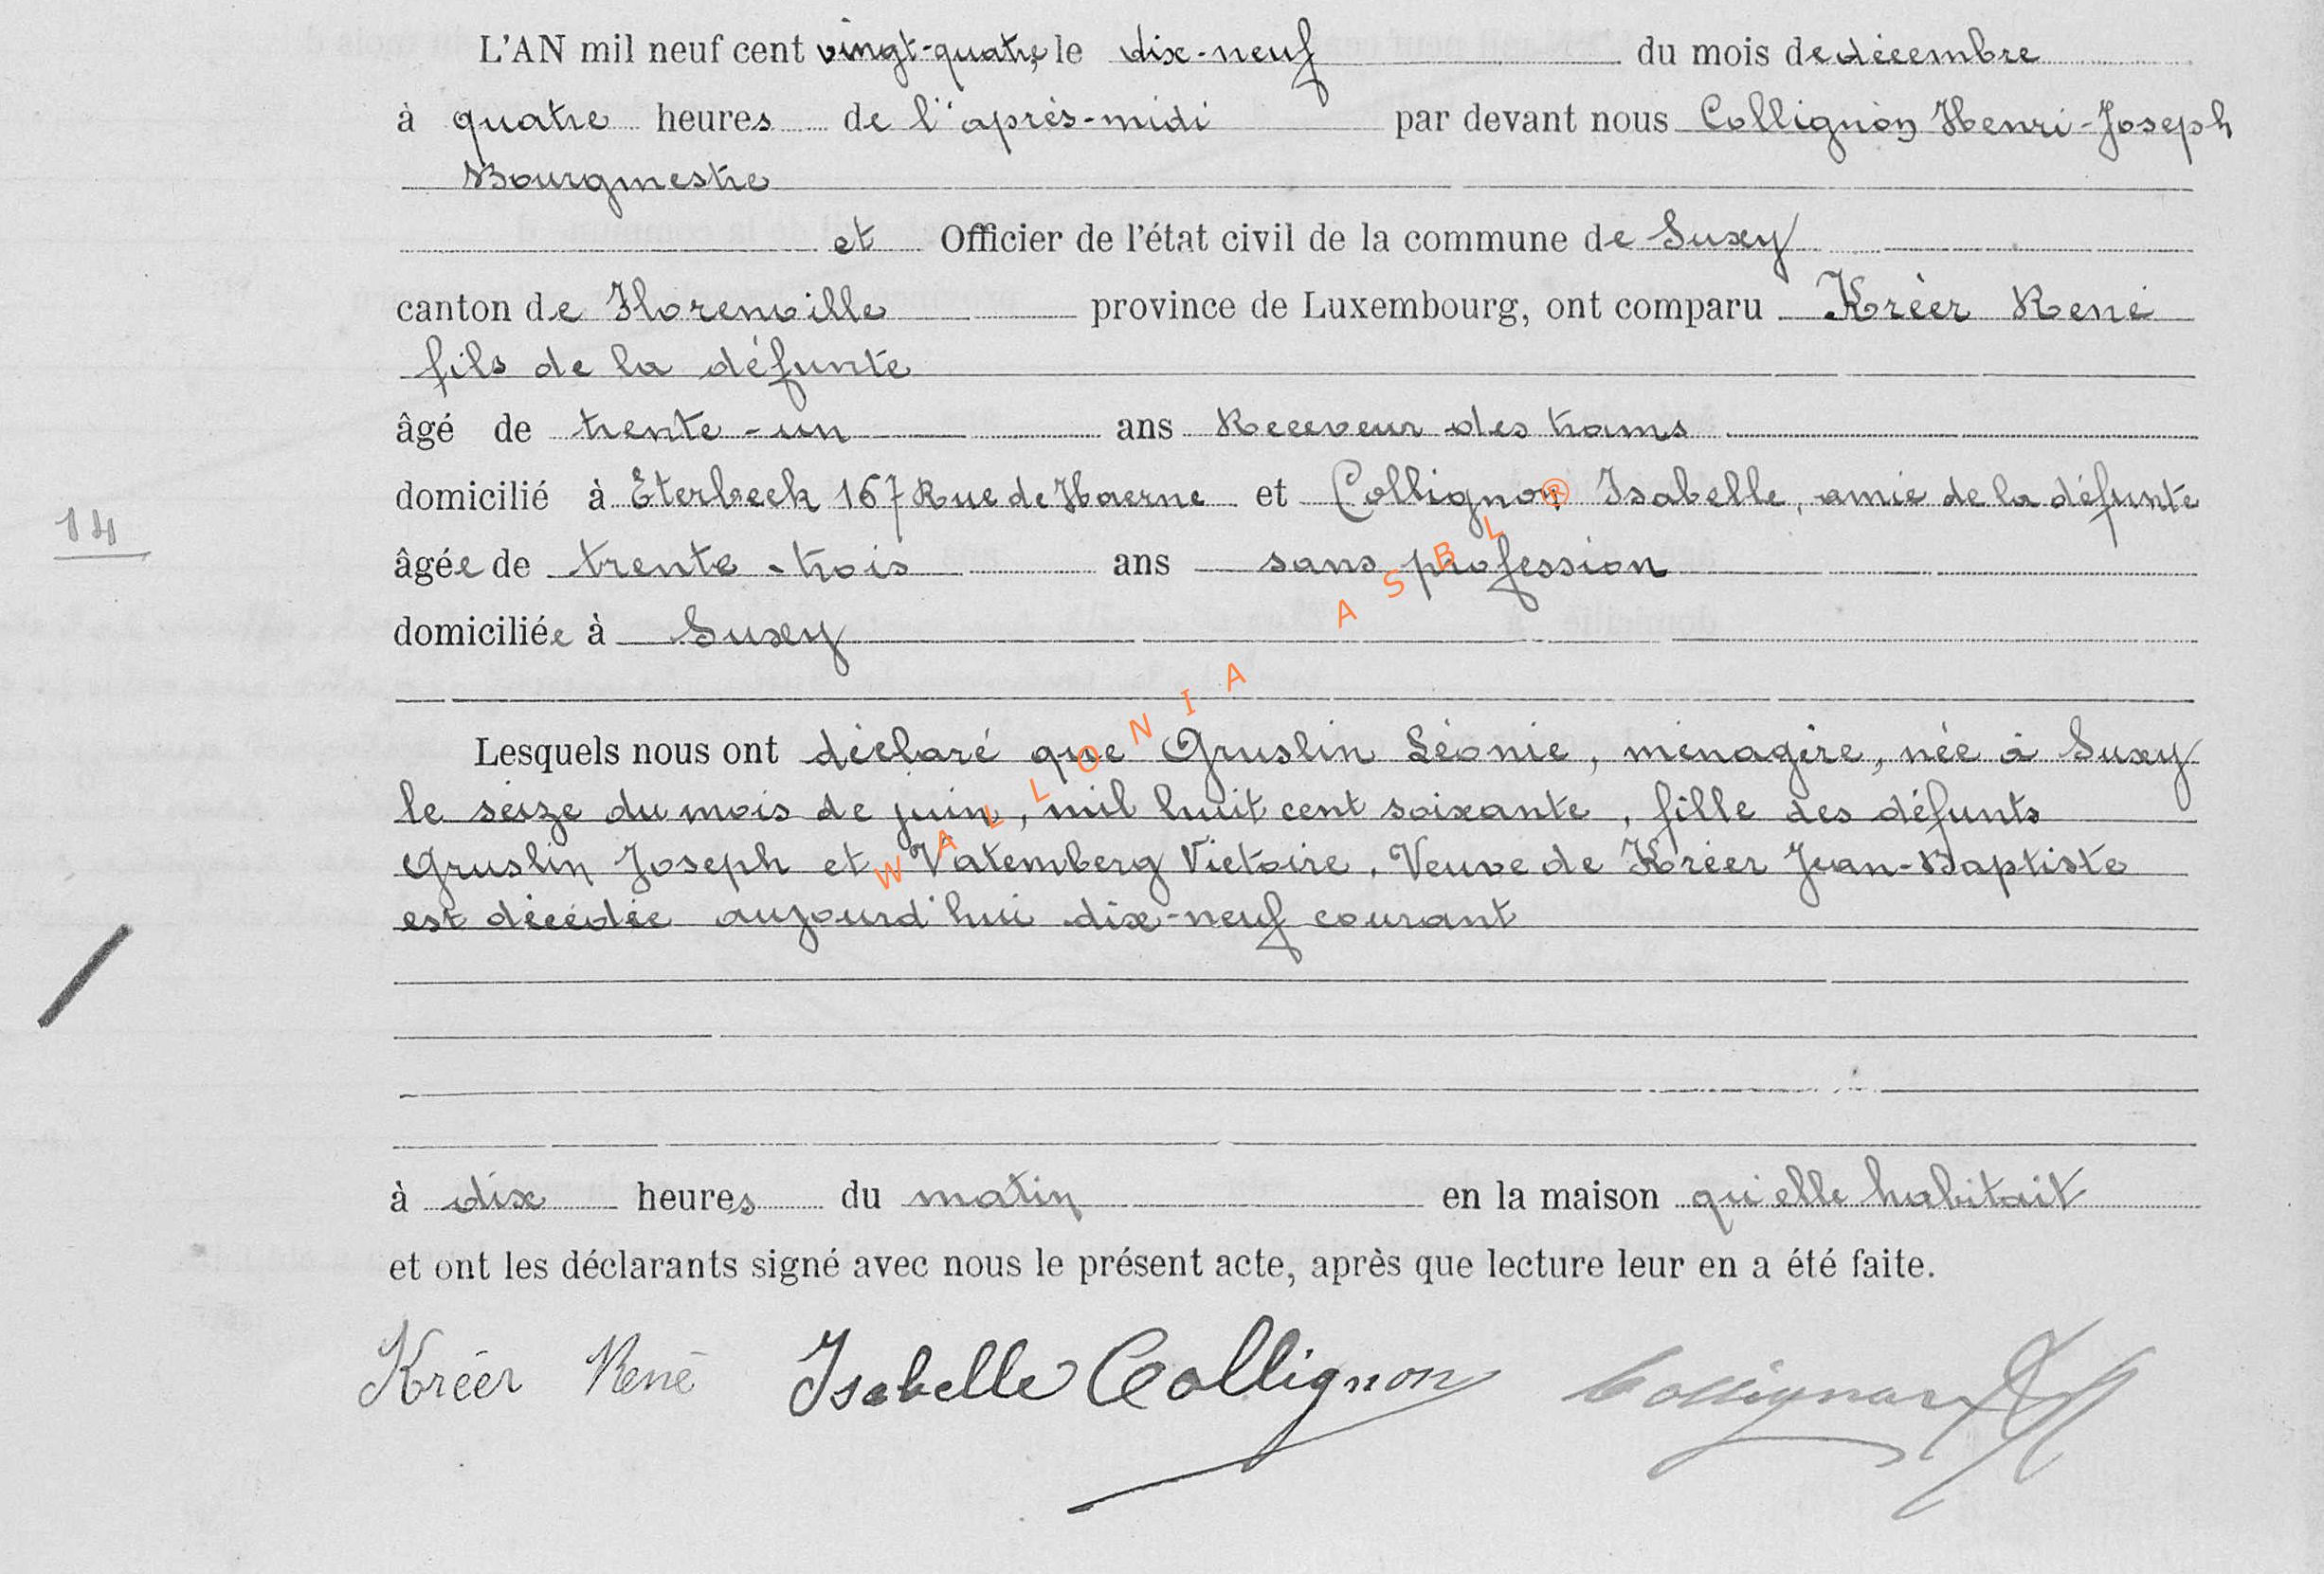 L'AN mil neuf cent vingt-quatre le dix-neuf du mois de décembre
à quatre heures de l'après-midi par devant nous Collignon Henri-Joseph
Bourgmestre
et Officier de l'état civil de la commune de Suxy
canton de Florenville province de Luxembourg, ont comparu Kréer René
fils de la défunte
âgé de trente-un ans Receveur des trams
domicilié à Eterbeek 167 Rue de Haerne et Collignon Isabelle, amie de la défunte
14
âgée de trente-trois ans sans profession
domiciliée à Suxy
Lesquels nous ont déclaré que Gruslin Léonie, ménagère, née à Suxy
le seize du mois de juin, mil huit cent soixante, fille des défunts
Gruslin Joseph et Vatemberg Victoire. Veuve de Kréer Jean-Baptiste
est décédée aujourd'hui dix-neuf courant
à dix heures du matin en la maison qu'elle habitait
et ont les déclarants signé avec nous le présent acte, après que lecture leur en a été faite.
Kréer René Isabelle Collignon Collignon
WALLONIA ASBL ®